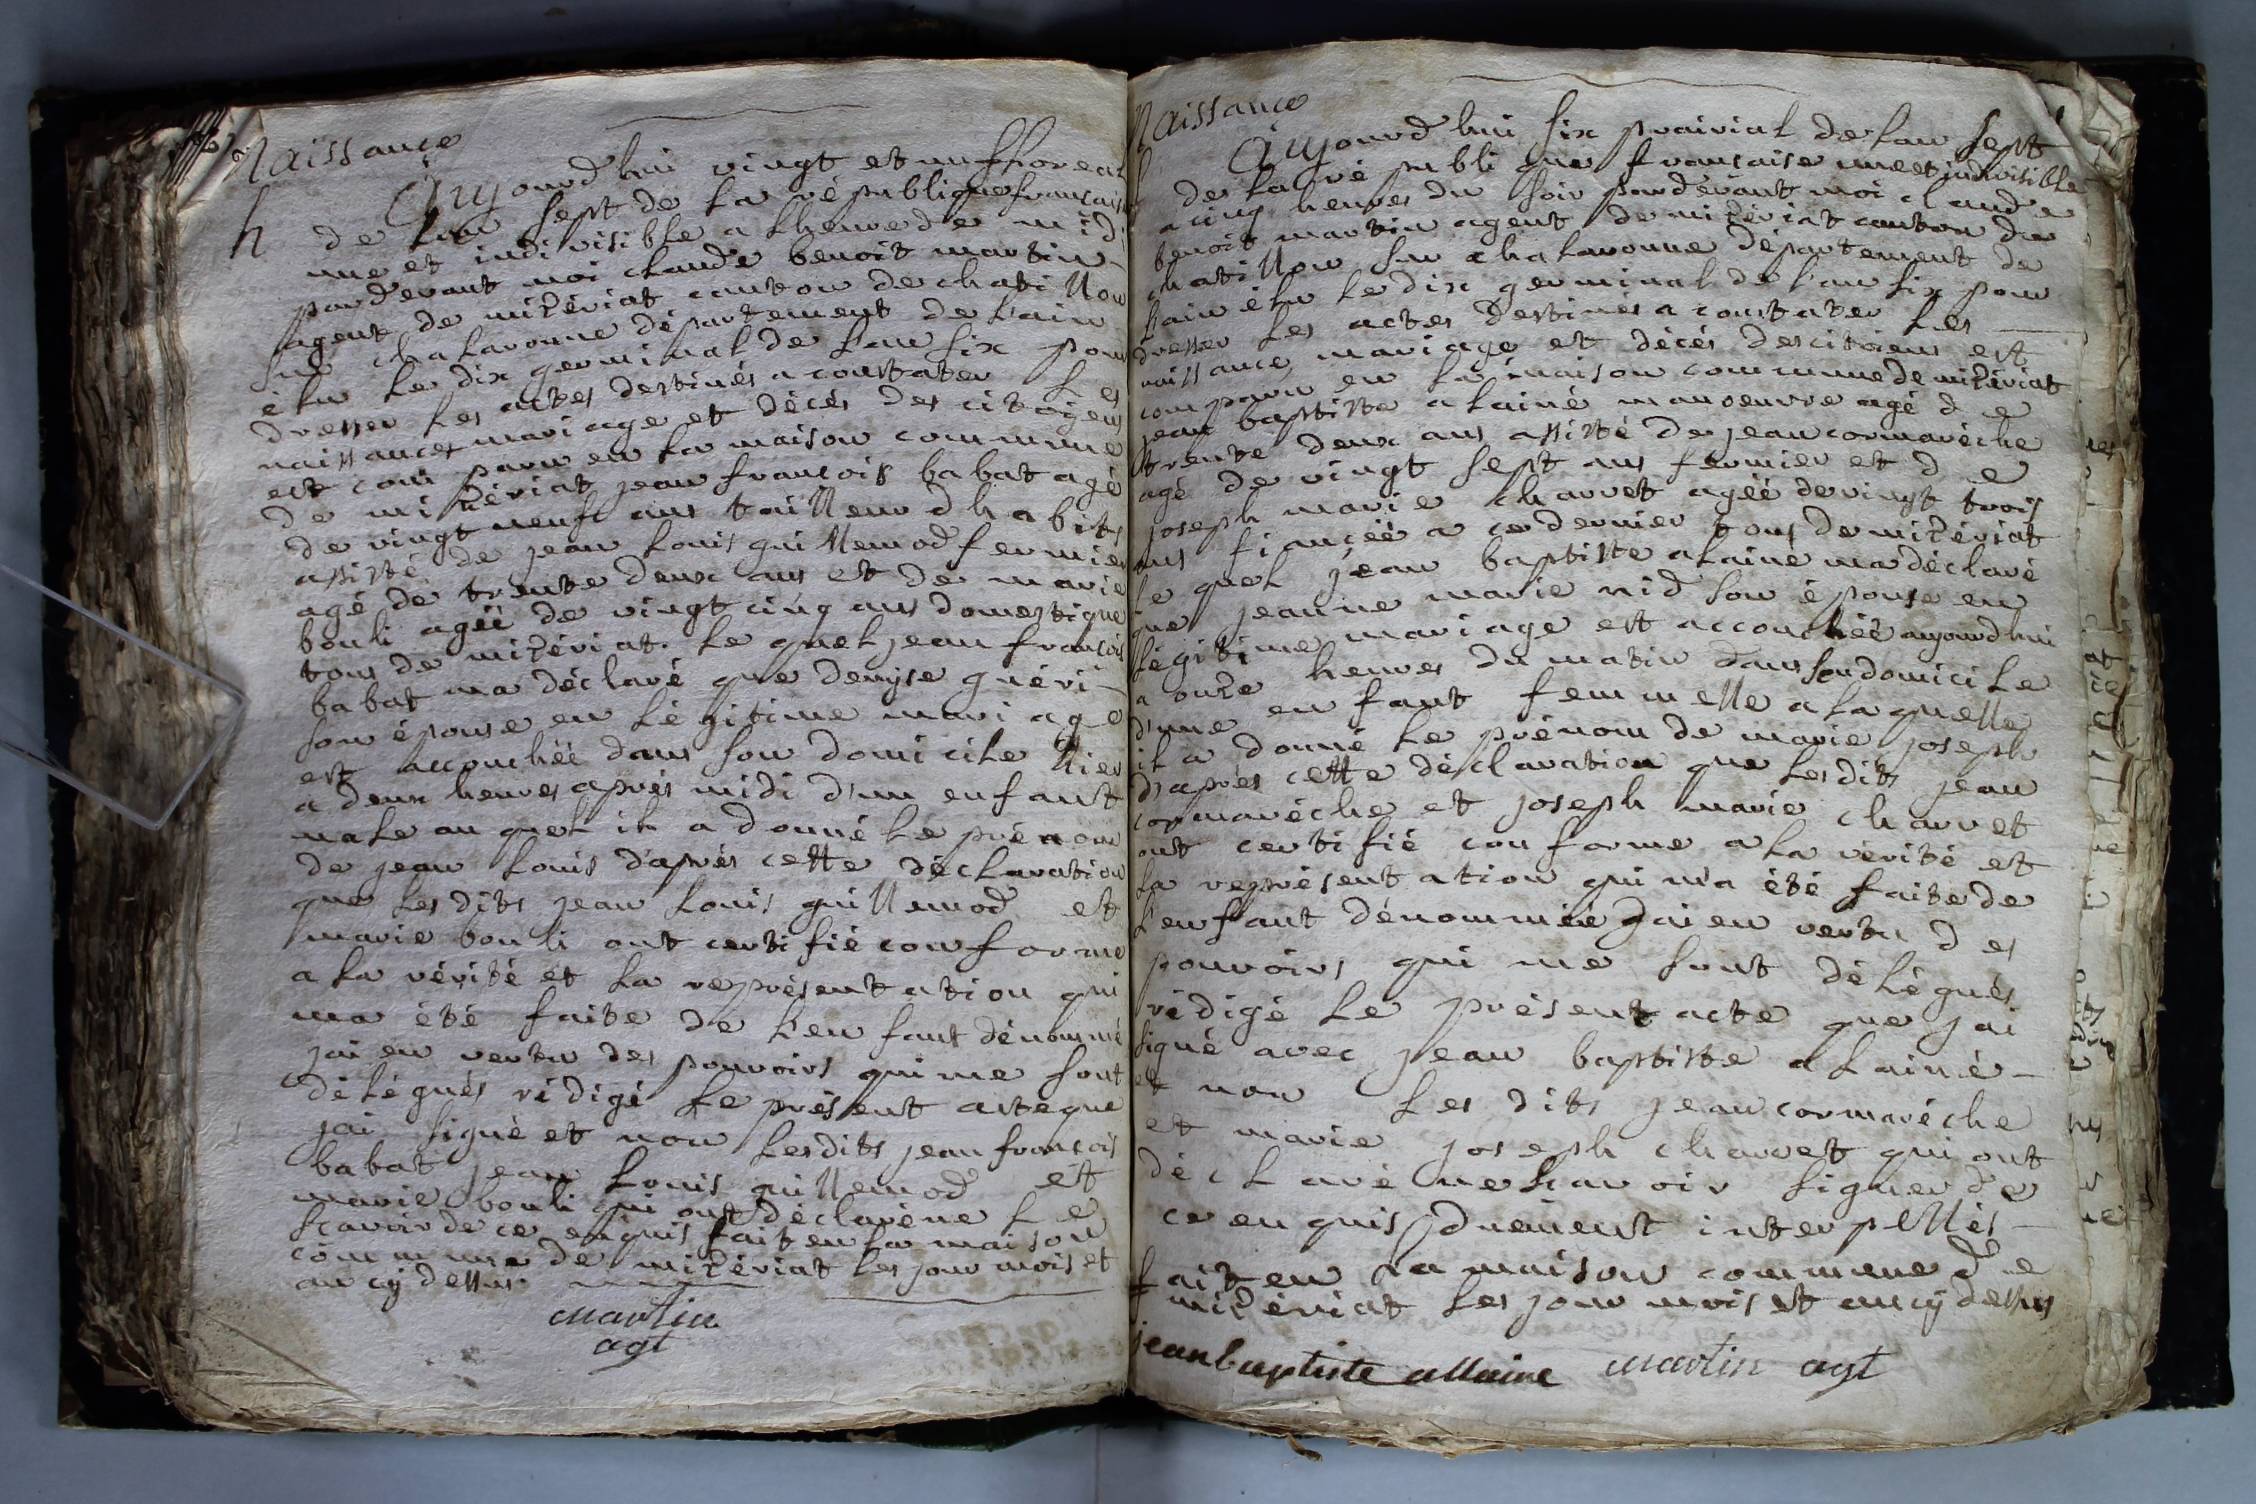 Naissance
h
Aujourd'hui vingt et un ffloreal
de l'an sept de la république française
une et indivisible a l'heure de midi
pardevant moi claude benoit martin
agent de mizériat canton de chatillon
sur chalaronne département de l'ain
élu le dix germinal de l'an six pour
dresser les actes destinés a constater les
naissances mariage et décés des citoyens
est comparu en la maison commune
de mizériat jean françois babat agé
de vingt neuf ans tailleur dhabits
assisté de jean louis guillemod fermier
agé de trente deux ans et de marie
bouli agéé de vingt cinq ans domestique
tous de mizériat. le quel jean françois
babat ma déclaré que denyse guéri
son épouse en légitime mariage
est accouchéé dans son domicile hier
a deux heures aprés midi d'un enfant
male au quel il a donné le prénom
de jean louis d'aprés cette déclaration
que les dits jean louis guillemod et
marie bouli ont certifié conforme
a la vérité et la représentation qui
ma été faite de l'enfant dénommé
jai en vertu des pouvoirs qui me sont
délégués rédigé le présent acte que
jai signé et non lesdits jean françois
babat jean louis guillemod et
marie bouli qui ont déclaré ne le
scavoir de ce enquis fait en la maison
commune de mizériat les jour mois et
an cy dessus.
martin
agt
Naissance
Aujourd'hui six prairial de l'an sept
de la république française une et indivisible
a cinq heures du soir pardevant moi claude
benoit martin agent de mizériat canton de
chatillon sur chalaronne département de
l'ain élu le dix germinal de l'an six pour
dresser les actes destinés a constater les
naissance mariage et décés des citoiens est
comparu en la maison commune de mizériat
jean baptiste alainé manoeuvre agé de
trente deux ans assisté de jean cormaréche
agé de vingt sept ans fermier et de
joseph marie charvet agéé de vingt trois
ans fiancéé a ce dernier tous de mizériat
le quel jean baptiste alainé ma déclaré
que jeanne marie nid son épouse en
légitime mariage est accouchéé aujourdhui
a onze heures du matin dans son domicile
d'une enfant femmelle a laquelle
il a donné le prénom de marie joseph
d'aprés cette déclaration que les dits jean
cormaréche et joseph marie charvet
ont certifié conforme a la vérité et
la représentation qui m'a été faite de
l'enfant dénomméé jai en vertu des
pouvoirs qui me sont délégués
rédigé le présent acte que jai
signé avec jean baptiste alainé
et non les dits jean cormaréche
et marie joseph charvet qui ont
déclaré ne scavoir signer de
ce enquis duement interpellés
fait en la maison commune de
mizériat les jour mois et an cy dessus
jean baptiste allaine martin agt